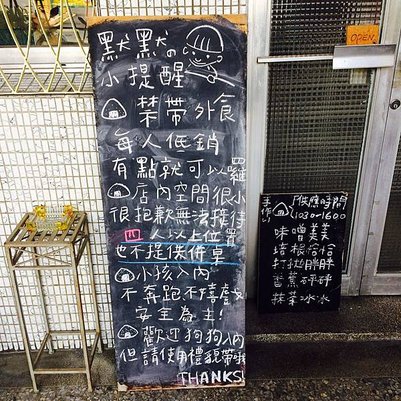 默默の
小提醒
禁帶外食
每人低銷
有點就可以囉
店內空間很小
很抱歉無法接待
四人以上位置
也不提供併桌
小孩入內
不奔跑不嬉戲
安全為主!
歡迎狗狗入內
但請使用禮貌帶哦
THANKS!
OPEN
手作
供應時間
1030-1600
味噌美美
培根恰恰
打拋胖胖
香蕉砰砰
抹茶冰冰